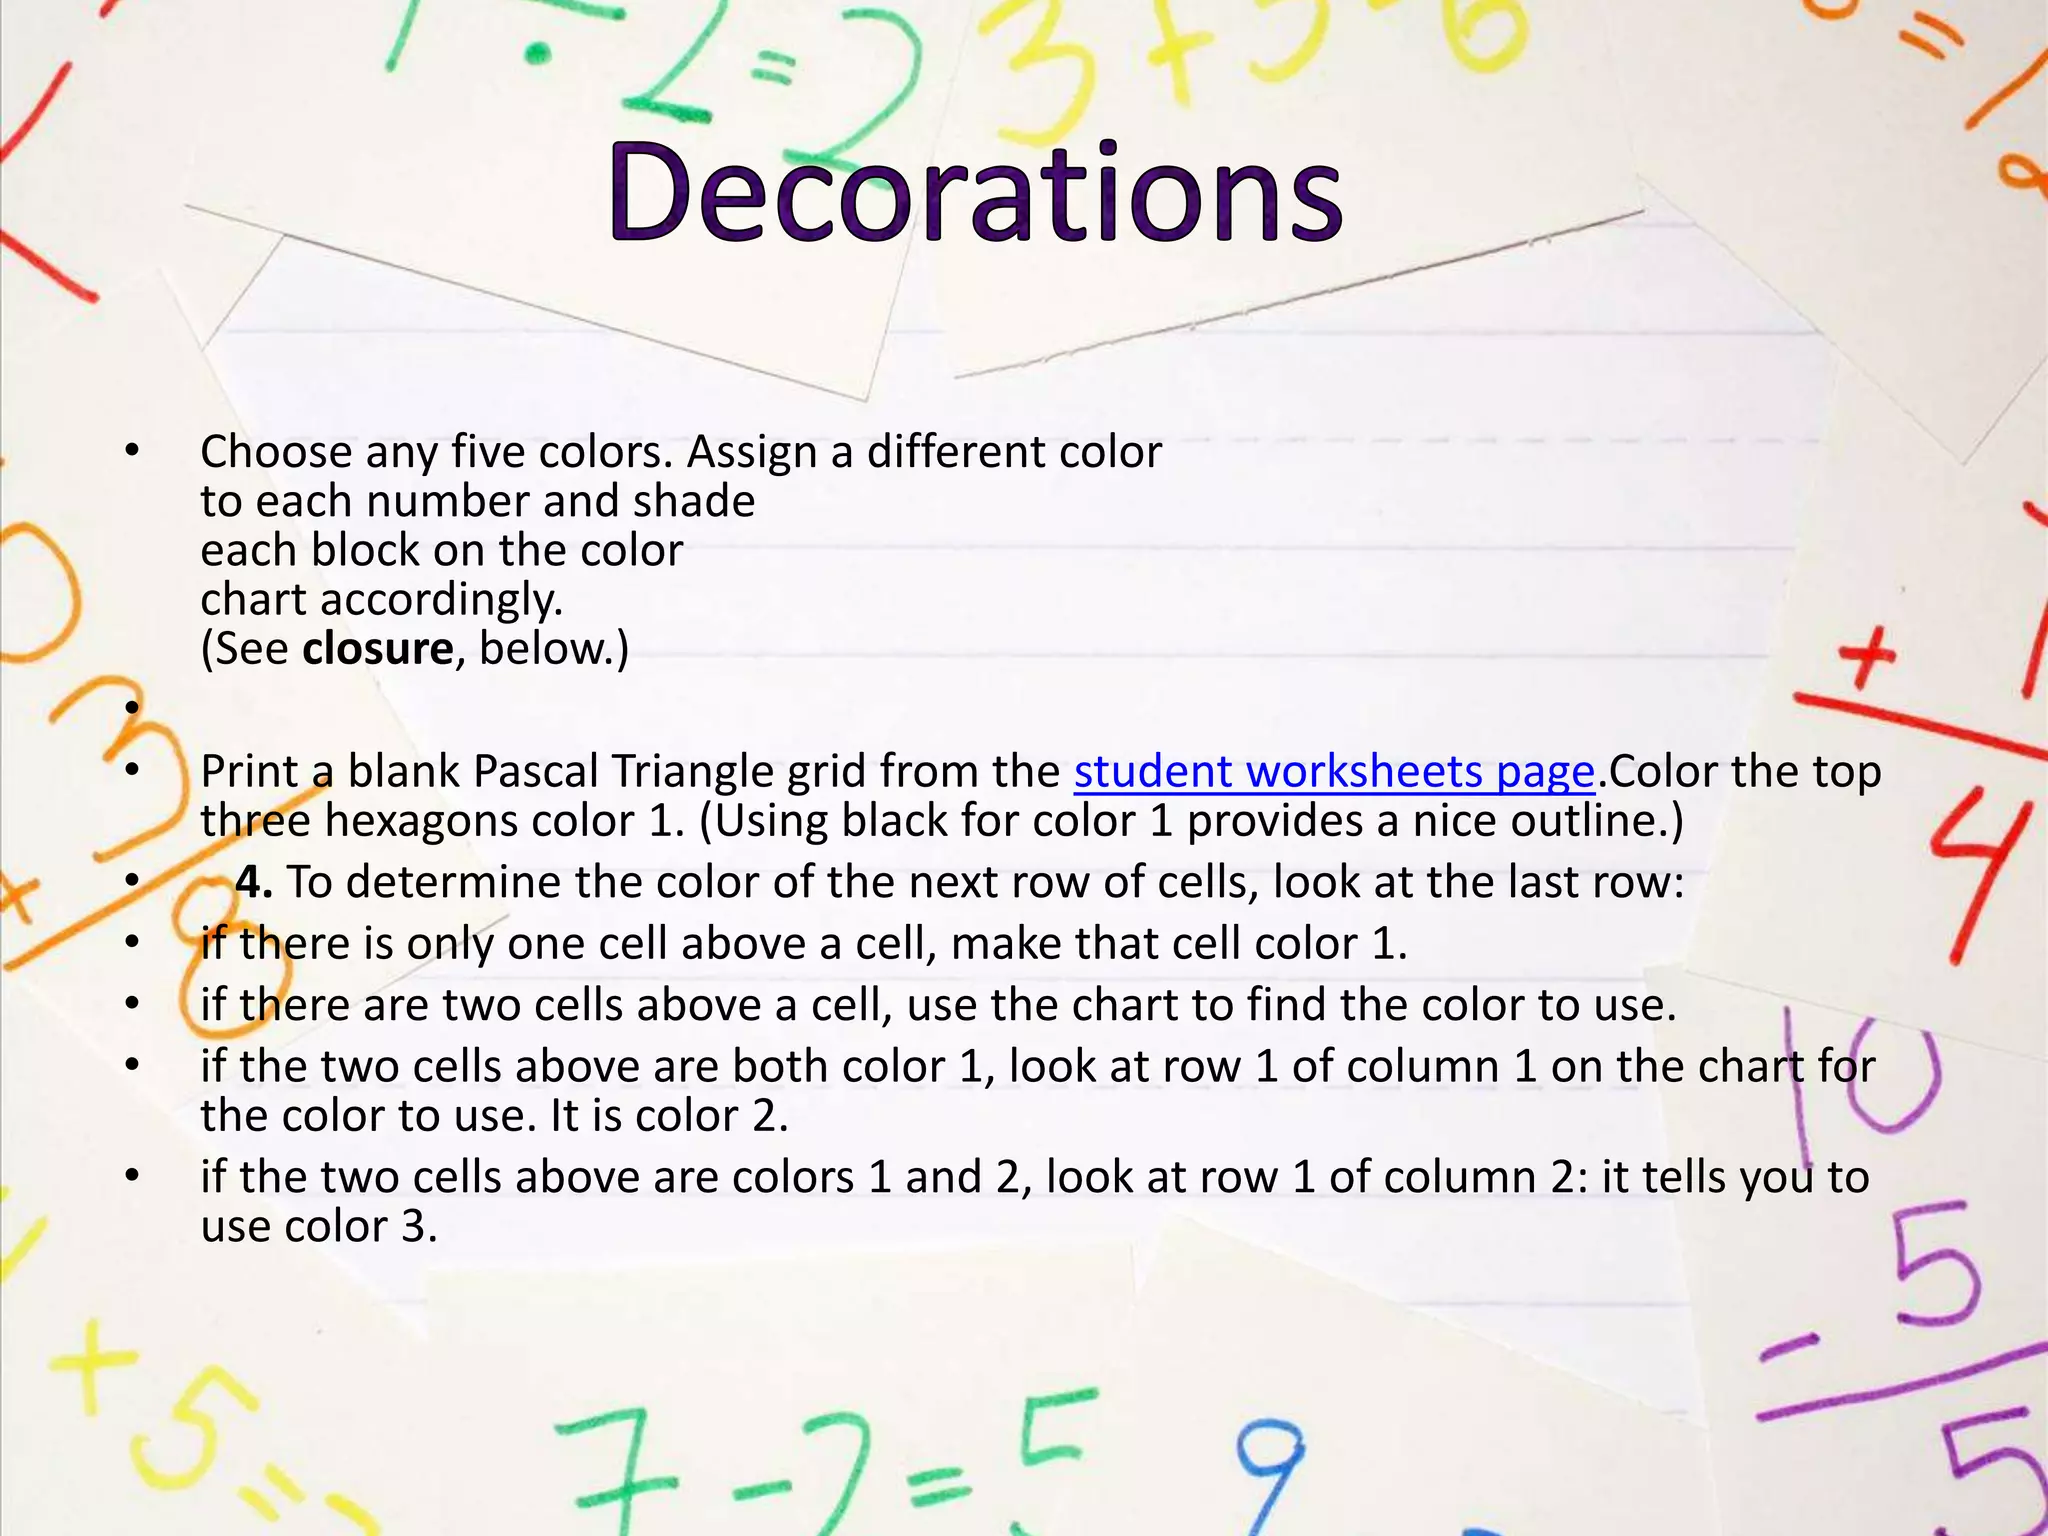 7 ÷ 2 = 2
3 + 3 = 6
= 1
Decorations
• Choose any five colors. Assign a different color
to each number and shade
each block on the color
chart accordingly.
(See closure, below.)
•
• Print a blank Pascal Triangle grid from the student worksheets page.Color the top
three hexagons color 1. (Using black for color 1 provides a nice outline.)
• 4. To determine the color of the next row of cells, look at the last row:
• if there is only one cell above a cell, make that cell color 1.
• if there are two cells above a cell, use the chart to find the color to use.
• if the two cells above are both color 1, look at row 1 of column 1 on the chart for
the color to use. It is color 2.
• if the two cells above are colors 1 and 2, look at row 1 of column 2: it tells you to
use color 3.
3
+
8
+ 1
4
10
- 5
5
+ 5 =
7 - 2 = 5
9